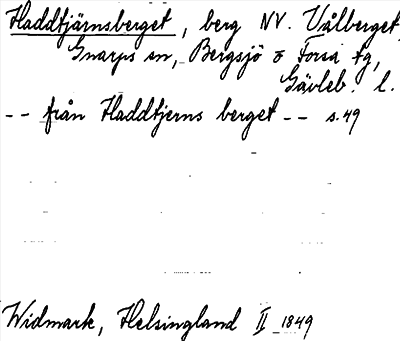 Haddtjärnsberget, berg NV. Vålberget,
Gnarps sn, Bergsjö o Forsa tg,
Gävleb. l.
-- från Haddtjerns berget -- s. 49
Widmark, Helsingland II 1849